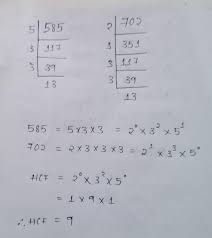 5 | 585   2 | 702
3 | 117   3 | 351
3 | 39   3 | 117
13   3 | 39
13
585 = 5 × 3 × 3 = 2⁰ × 3² × 5¹
702 = 2 × 3 × 3 × 3 = 2¹ × 3³ × 5⁰
HCF = 2⁰ × 3² × 5⁰
= 1 × 9 × 1
∴ HCF = 9